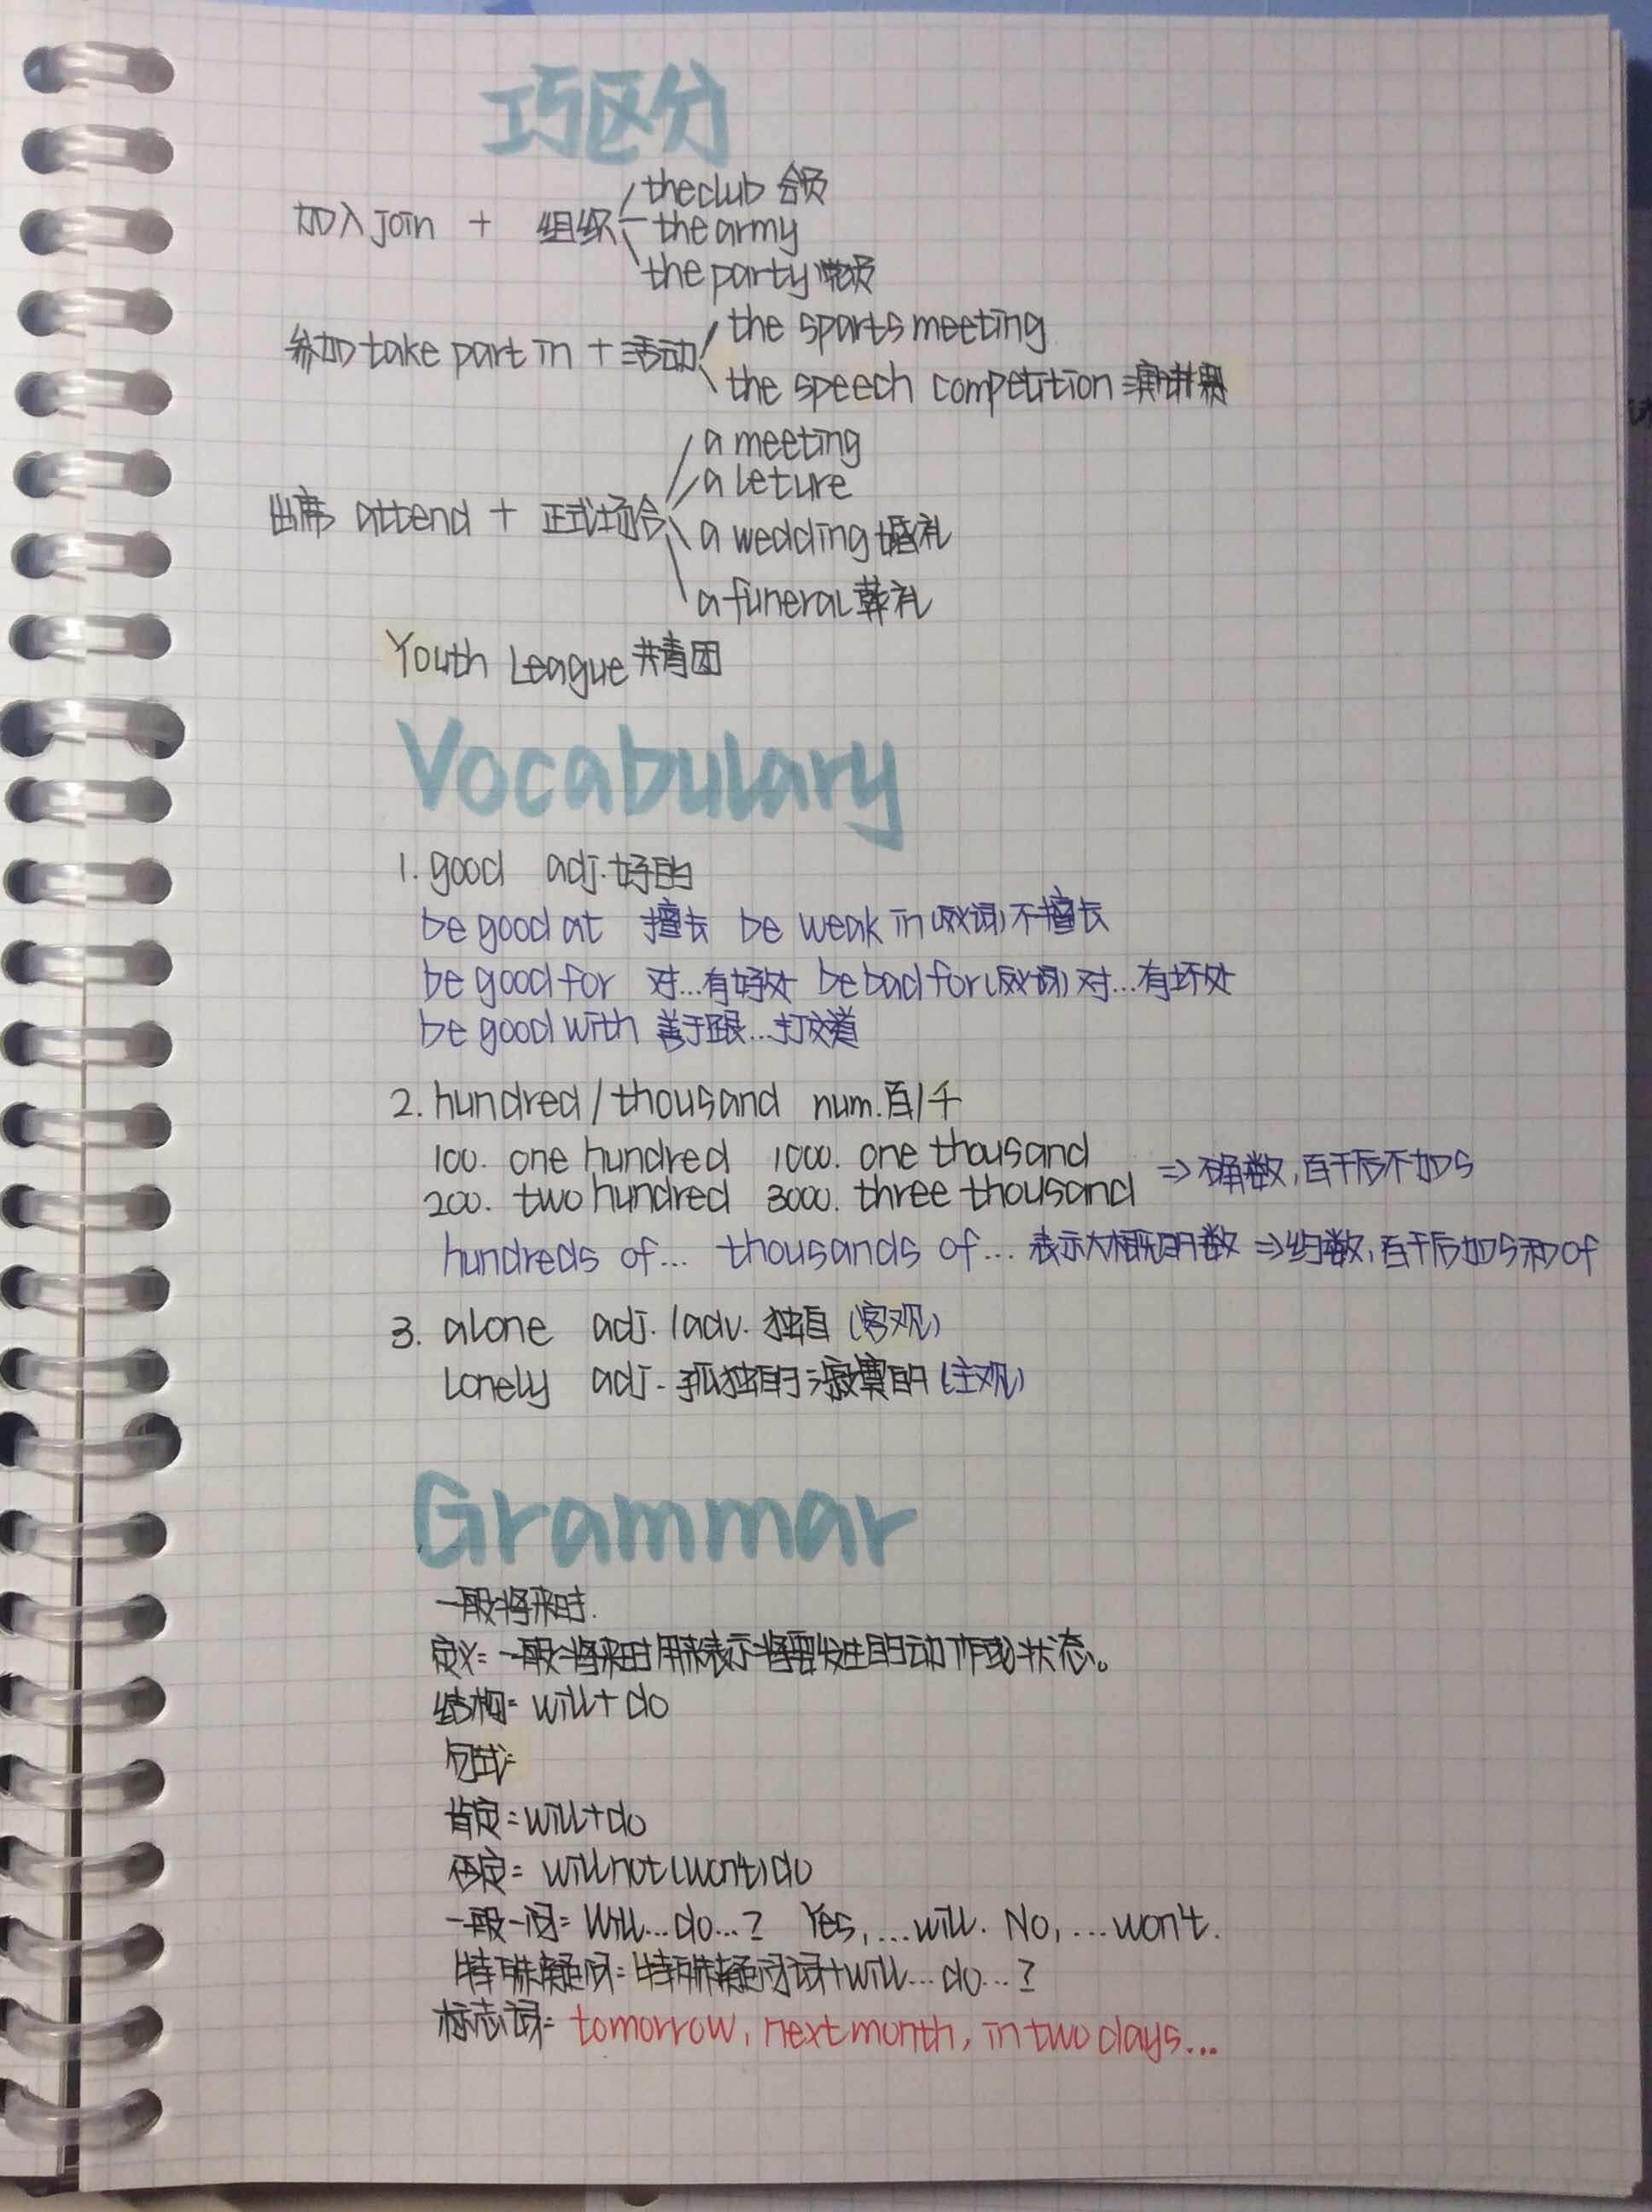 巧区分
the club 会员
加入 join + 组织 the army
the party 党员
the sports meeting
参加 take part in + 活动
the speech competition 演讲赛
a meeting
a leture
出席 attend + 正式场合
a wedding 婚礼
a funeral 葬礼
Youth League 共青团
Vocabulary
1. good adj. 好的
be good at 擅长 be weak in (反义词) 不擅长
be good for 对...有好处 be bad for (反义词) 对...有坏处
be good with 善于跟...打交道
2. hundred / thousand num. 百/千
100. one hundred 1000. one thousand
⇒ 确数, 百千后不加s
200. two hundred 3000. three thousand
hundreds of... thousands of... 表示大概的数 ⇒ 约数, 百千后加s和of
3. alone adj. /adv. 独自 (客观)
lonely adj. 孤独的 寂寞的 (主观)
Grammar
一般将来时.
定义: 一般将来时用来表示将要发生的动作或状态。
结构: will + do
句式:
肯定: will + do
否定: will not (won't) do
一般一问: Will... do...? Yes, ... will. No, ... won't.
特殊疑问: 特殊疑问词 + will... do...?
标志词: tomorrow, next month, in two days...